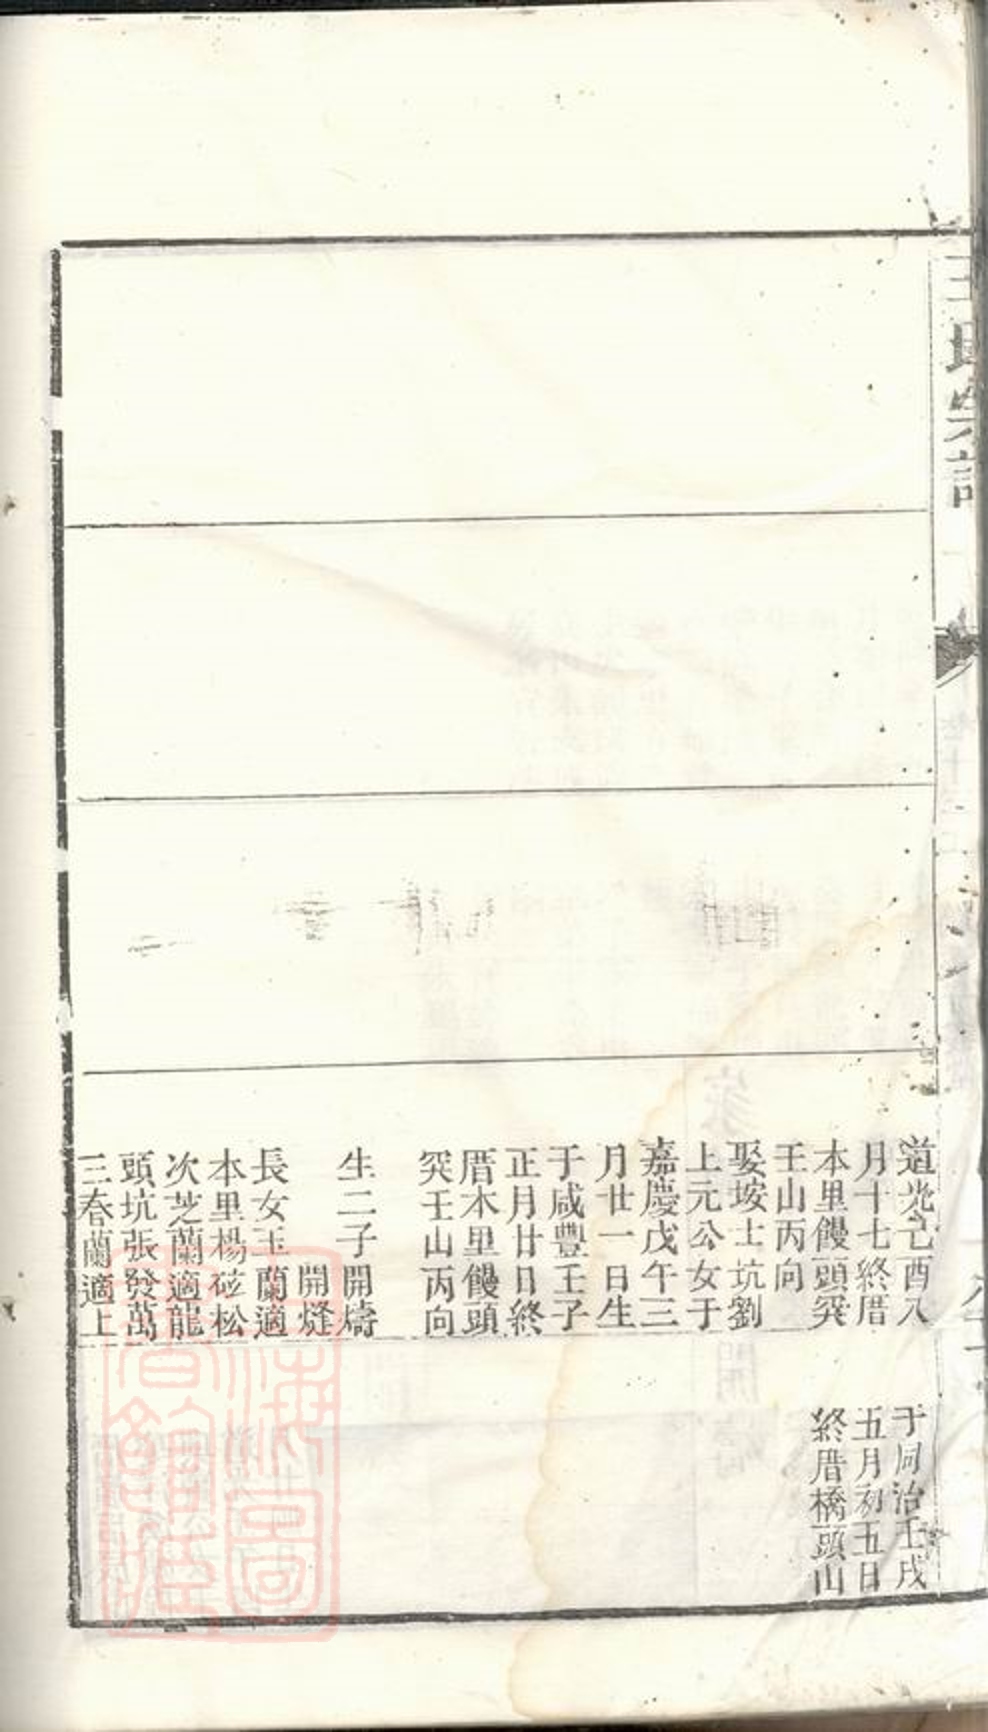 王氏宗譜
道光己酉八
月十七終厝
本里饅頭突
壬山丙向
娶垵士坑劉
上元公女于
嘉慶戊午三
月廿一日生
于咸豐壬子
正月廿日終
厝本里饅頭
突壬山丙向
生二子開燽
開熢
長女玉蘭適
本里楊碰松
次芝蘭適龍
頭坑張發萬
三春蘭適上
于同治壬戌
五月初五日
終厝橋頭山
上海圖書館藏